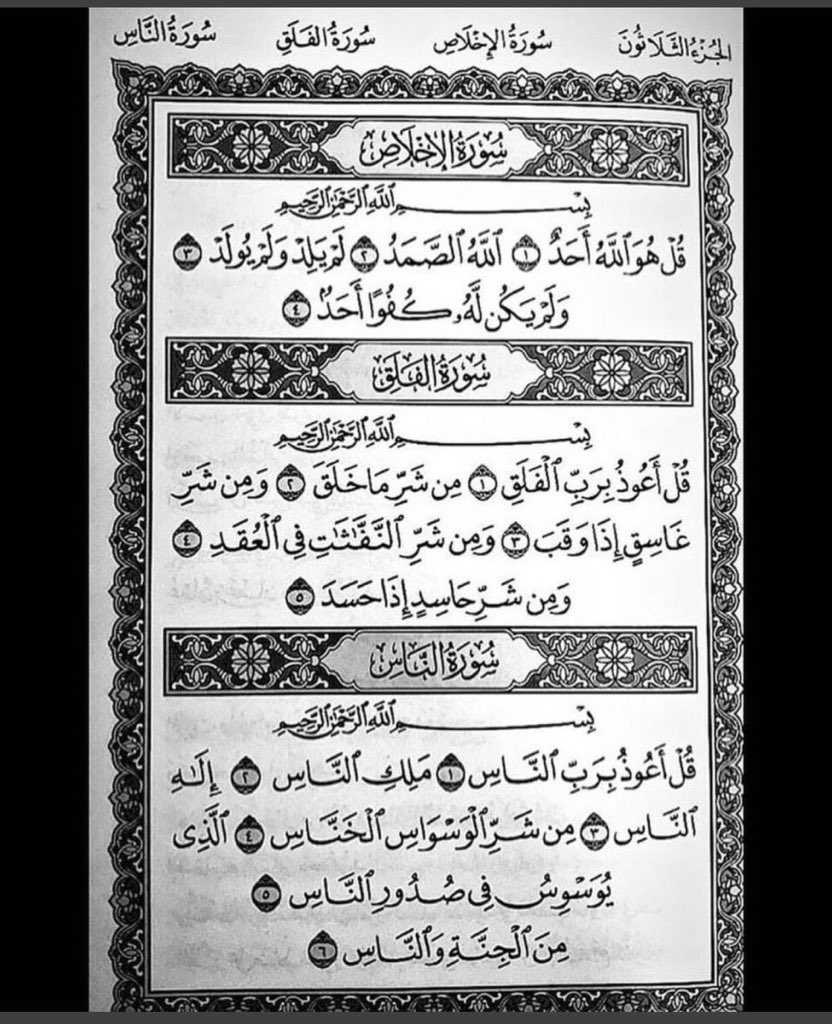 الجُزءُ الثَّلَاثُونَ سُورَةُ الإِخْلَاصِ سُورَةُ الفَلَقِ سُورَةُ النَّاسِ
سُورَةُ الإِخْلَاصِ
بِسْمِ ٱللَّهِ ٱلرَّحْمَٰنِ ٱلرَّحِيمِ
قُلْ هُوَ ٱللَّهُ أَحَدٌ ١ ٱللَّهُ ٱلصَّمَدُ ٢ لَمْ يَلِدْ وَلَمْ يُولَدْ ٣
وَلَمْ يَكُن لَّهُۥ كُفُوًا أَحَدٌۢ ٤
سُورَةُ الفَلَقِ
بِسْمِ ٱللَّهِ ٱلرَّحْمَٰنِ ٱلرَّحِيمِ
قُلْ أَعُوذُ بِرَبِّ ٱلْفَلَقِ ١ مِن شَرِّ مَا خَلَقَ ٢ وَمِن شَرِّ
غَاسِقٍ إِذَا وَقَبَ ٣ وَمِن شَرِّ ٱلنَّفَّٰثَٰتِ فِى ٱلْعُقَدِ ٤
وَمِن شَرِّ حَاسِدٍ إِذَا حَسَدَ ٥
سُورَةُ النَّاسِ
بِسْمِ ٱللَّهِ ٱلرَّحْمَٰنِ ٱلرَّحِيمِ
قُلْ أَعُوذُ بِرَبِّ ٱلنَّاسِ ١ مَلِكِ ٱلنَّاسِ ٢ إِلَٰهِ
ٱلنَّاسِ ٣ مِن شَرِّ ٱلْوَسْوَاسِ ٱلْخَنَّاسِ ٤ ٱلَّذِى
يُوَسْوِسُ فِى صُدُورِ ٱلنَّاسِ ٥
مِنَ ٱلْجِنَّةِ وَٱلنَّاسِ ٦